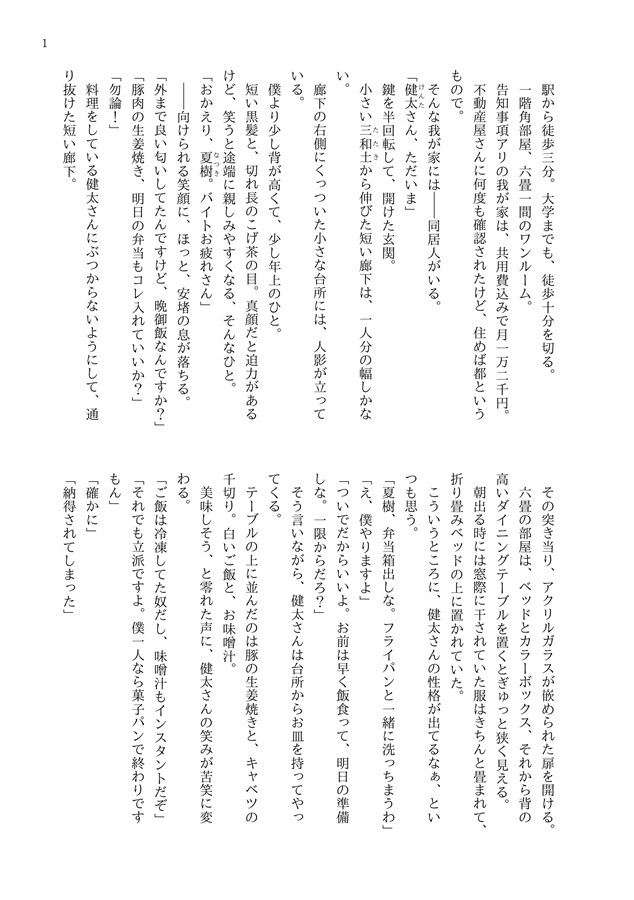 1
駅から徒歩三分。大学までも、徒歩十分を切る。
一階角部屋、六畳一間のワンルーム。
告知事項アリの我が家は、共用費込みで月一万二千円。
不動産屋さんに何度も確認されたけど、住めば都という
もので。
そんな我が家には――同居人がいる。
「健太さん、ただいま」
鍵を半回転して、開けた玄関。
小さい三和土から伸びた短い廊下は、一人分の幅しかな
い。
廊下の右側にくっついた小さな台所には、人影が立って
いる。
僕より少し背が高くて、少し年上のひと。
短い黒髪と、切れ長のこげ茶の目。真顔だと迫力がある
けど、笑うと途端に親しみやすくなる、そんなひと。
「おかえり、夏樹。バイトお疲れさん」
――向けられる笑顔に、ほっと、安堵の息が落ちる。
「外まで良い匂いしてたんですけど、晩御飯なんですか？」
「豚肉の生姜焼き、明日の弁当もコレ入れていいか？」
「勿論！」
料理をしている健太さんにぶつからないようにして、通
り抜けた短い廊下。
その突き当り、アクリルガラスが嵌められた扉を開ける。
六畳の部屋は、ベッドとカラーボックス、それから背の
高いダイニングテーブルを置くとぎゅっと狭く見える。
朝出る時には窓際に干されていた服はきちんと畳まれて、
折り畳みベッドの上に置かれていた。
こういうところに、健太さんの性格が出てるなぁ、とい
つも思う。
「夏樹、弁当箱出しな。フライパンと一緒に洗っちまうわ」
「え、僕やりますよ」
「ついでだからいいよ。お前は早く飯食って、明日の準備
しな。一限からだろ？」
そう言いながら、健太さんは台所からお皿を持ってやっ
てくる。
テーブルの上に並んだのは豚の生姜焼きと、キャベツの
千切り。白いご飯と、お味噌汁。
美味しそう、と零れた声に、健太さんの笑みが苦笑に変
わる。
「ご飯は冷凍してた奴だし、味噌汁もインスタントだぞ」
「それでも立派ですよ。僕一人なら菓子パンで終わりです
もん」
「確かに」
「納得されてしまった」